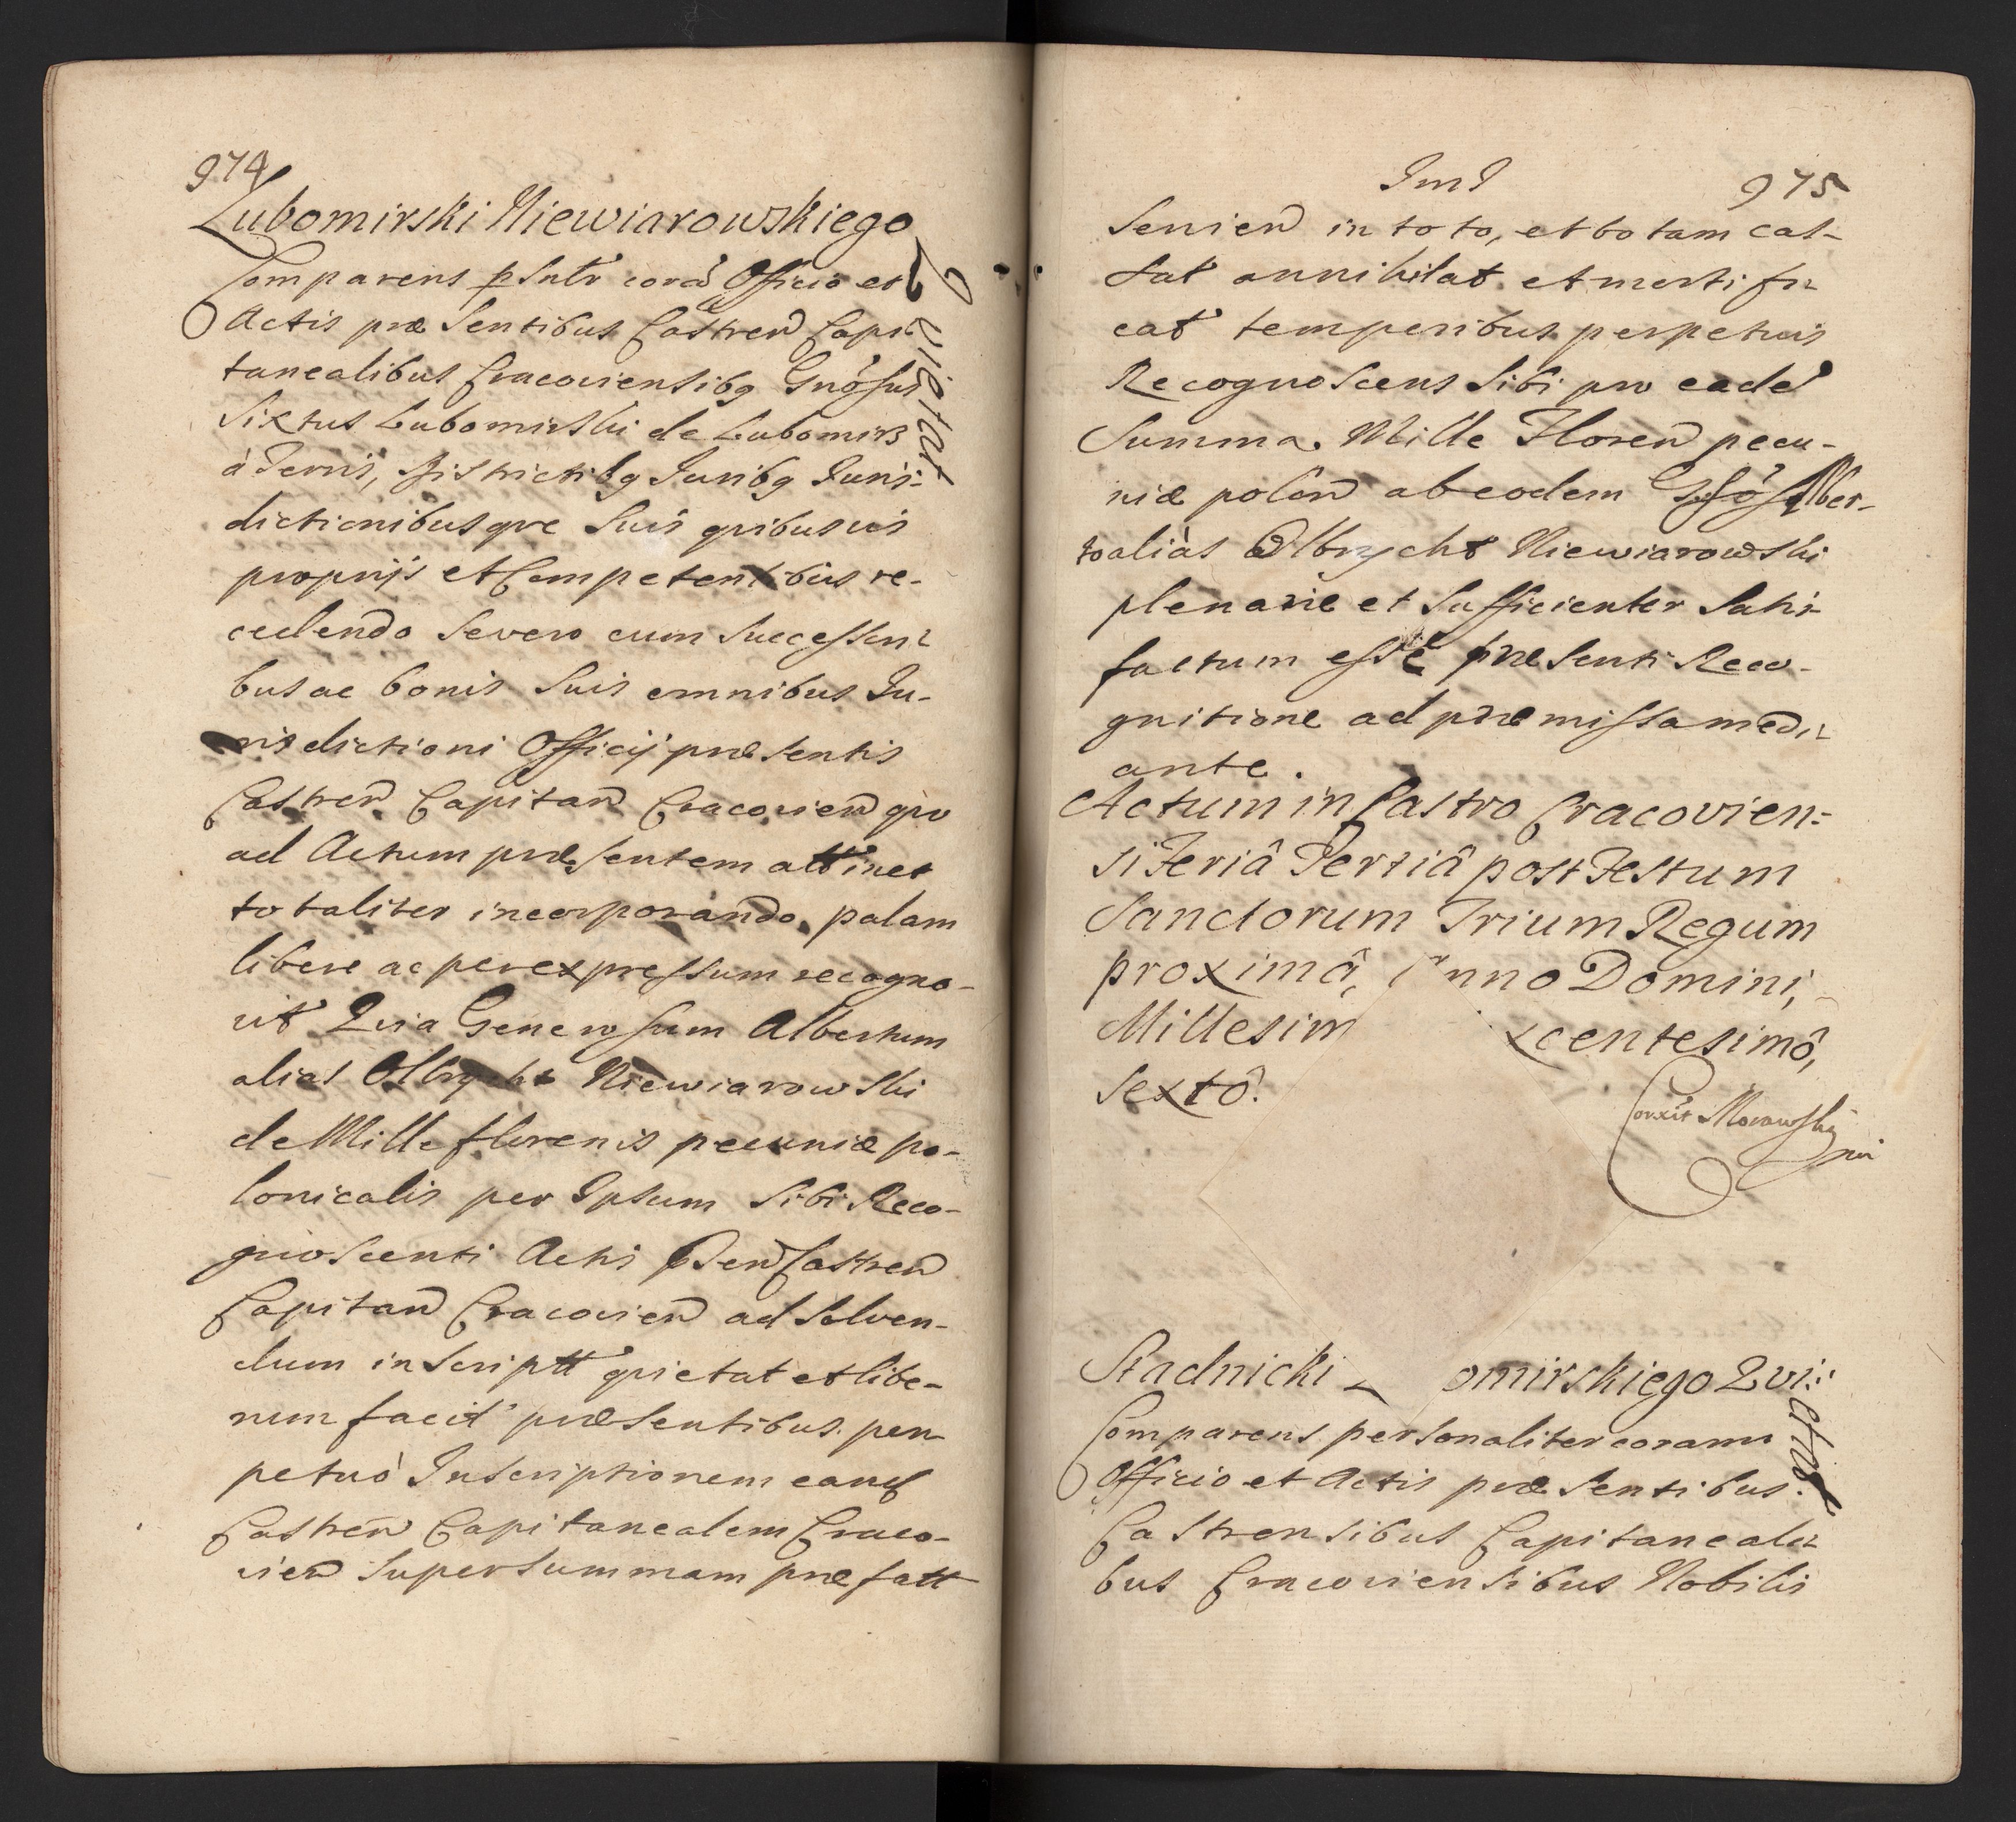 974
Lubomirski Niewiarowskiego
Quietat
Comparens psntr corā Officio et
Actis præsentibus Castren Capi
tanealibus Cracoviensibq Gnosus
Sixtus Lubomirski de Lubomirz
à Terris, Districtibq Juribq Juris-
dictionibusqve suis qvibusvis
proprijs et Competentibus re-
cedendo Severo cum Successori
bus ac bonis Suis omnibus Ju-
risdictioni Officij præsentis
Castren Capitan Cracovien qvo
ad Actum præsentem attinet
totaliter incorporando, palam
libere ac per expressum recogno-
vit Qvia Generosum Albertum
alias Olbrycht Niewiarowski
de Mille florenis pecuniæ po-
lonicalis per Ipsum Sibi Reco-
gnoscenti Actis Psen Castren
Capitan Cracovien ad Solven-
dum inscriptt qvietat et libe-
rum facit præsentibus per
petuò Inscriptionem eand
Castren Capitanealem Craco-
vien Super Summam præfatt
JmJ
975
Servien in toto, et totam Cas-
sat annihilat et mortifi
cat temporibus perpetuis
Recognoscens Sibi pro eadē
Summa Mille Floren pecu-
niæ polon ab eodem Gso Alber-
to aliàs Olbrycht Niewiarowski
plenarie et Sufficienter Satis
factum esse præsenti Reco-
gnitione ad præmissa medi
ante.
Actum in Castro Cracovien=
si Feriâ Tertiâ post Festum
Sanctorum Trium Regum
proximâ, Anno Domini,
Millesim xcentesimô,
Sextô.
Corrxit Morawski
Stadnicki L omirskiego Qvi:
etat
Comparens personaliter coram
Officio et Actis præsentibus
Castrensibus Capitaneali
bus Cracoviensibus Nobilis